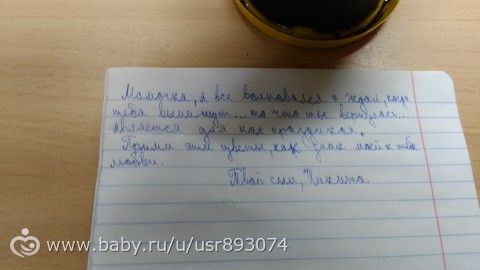 Мамочка, я все волновался и ждал, когда
тебя выпишут... то что ты вернулась...
является для нас праздником.
Прими эти цветы, как знак моей к тебе
любви.
Твой сын, Никита.
www.baby.ru/u/usr893074